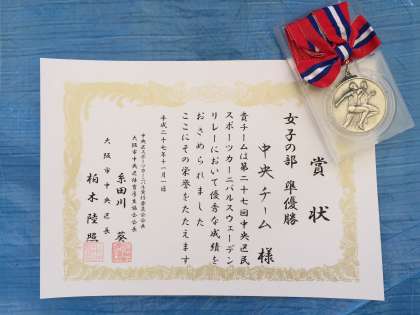 賞状
女子の部 準優勝
中央チーム 様
貴チームは第二十七回中央区民
スポーツカーニバルスウェーデン
リレーにおいて優秀な成績を
おさめられました
ここにその栄誉をたたえます
平成二十七年十一月一日
中央区スポーツカーニバル実行委員会会長
大阪市中央区体育厚生協会会長
糸田川 葵
大阪市中央区長
柏木 陸照